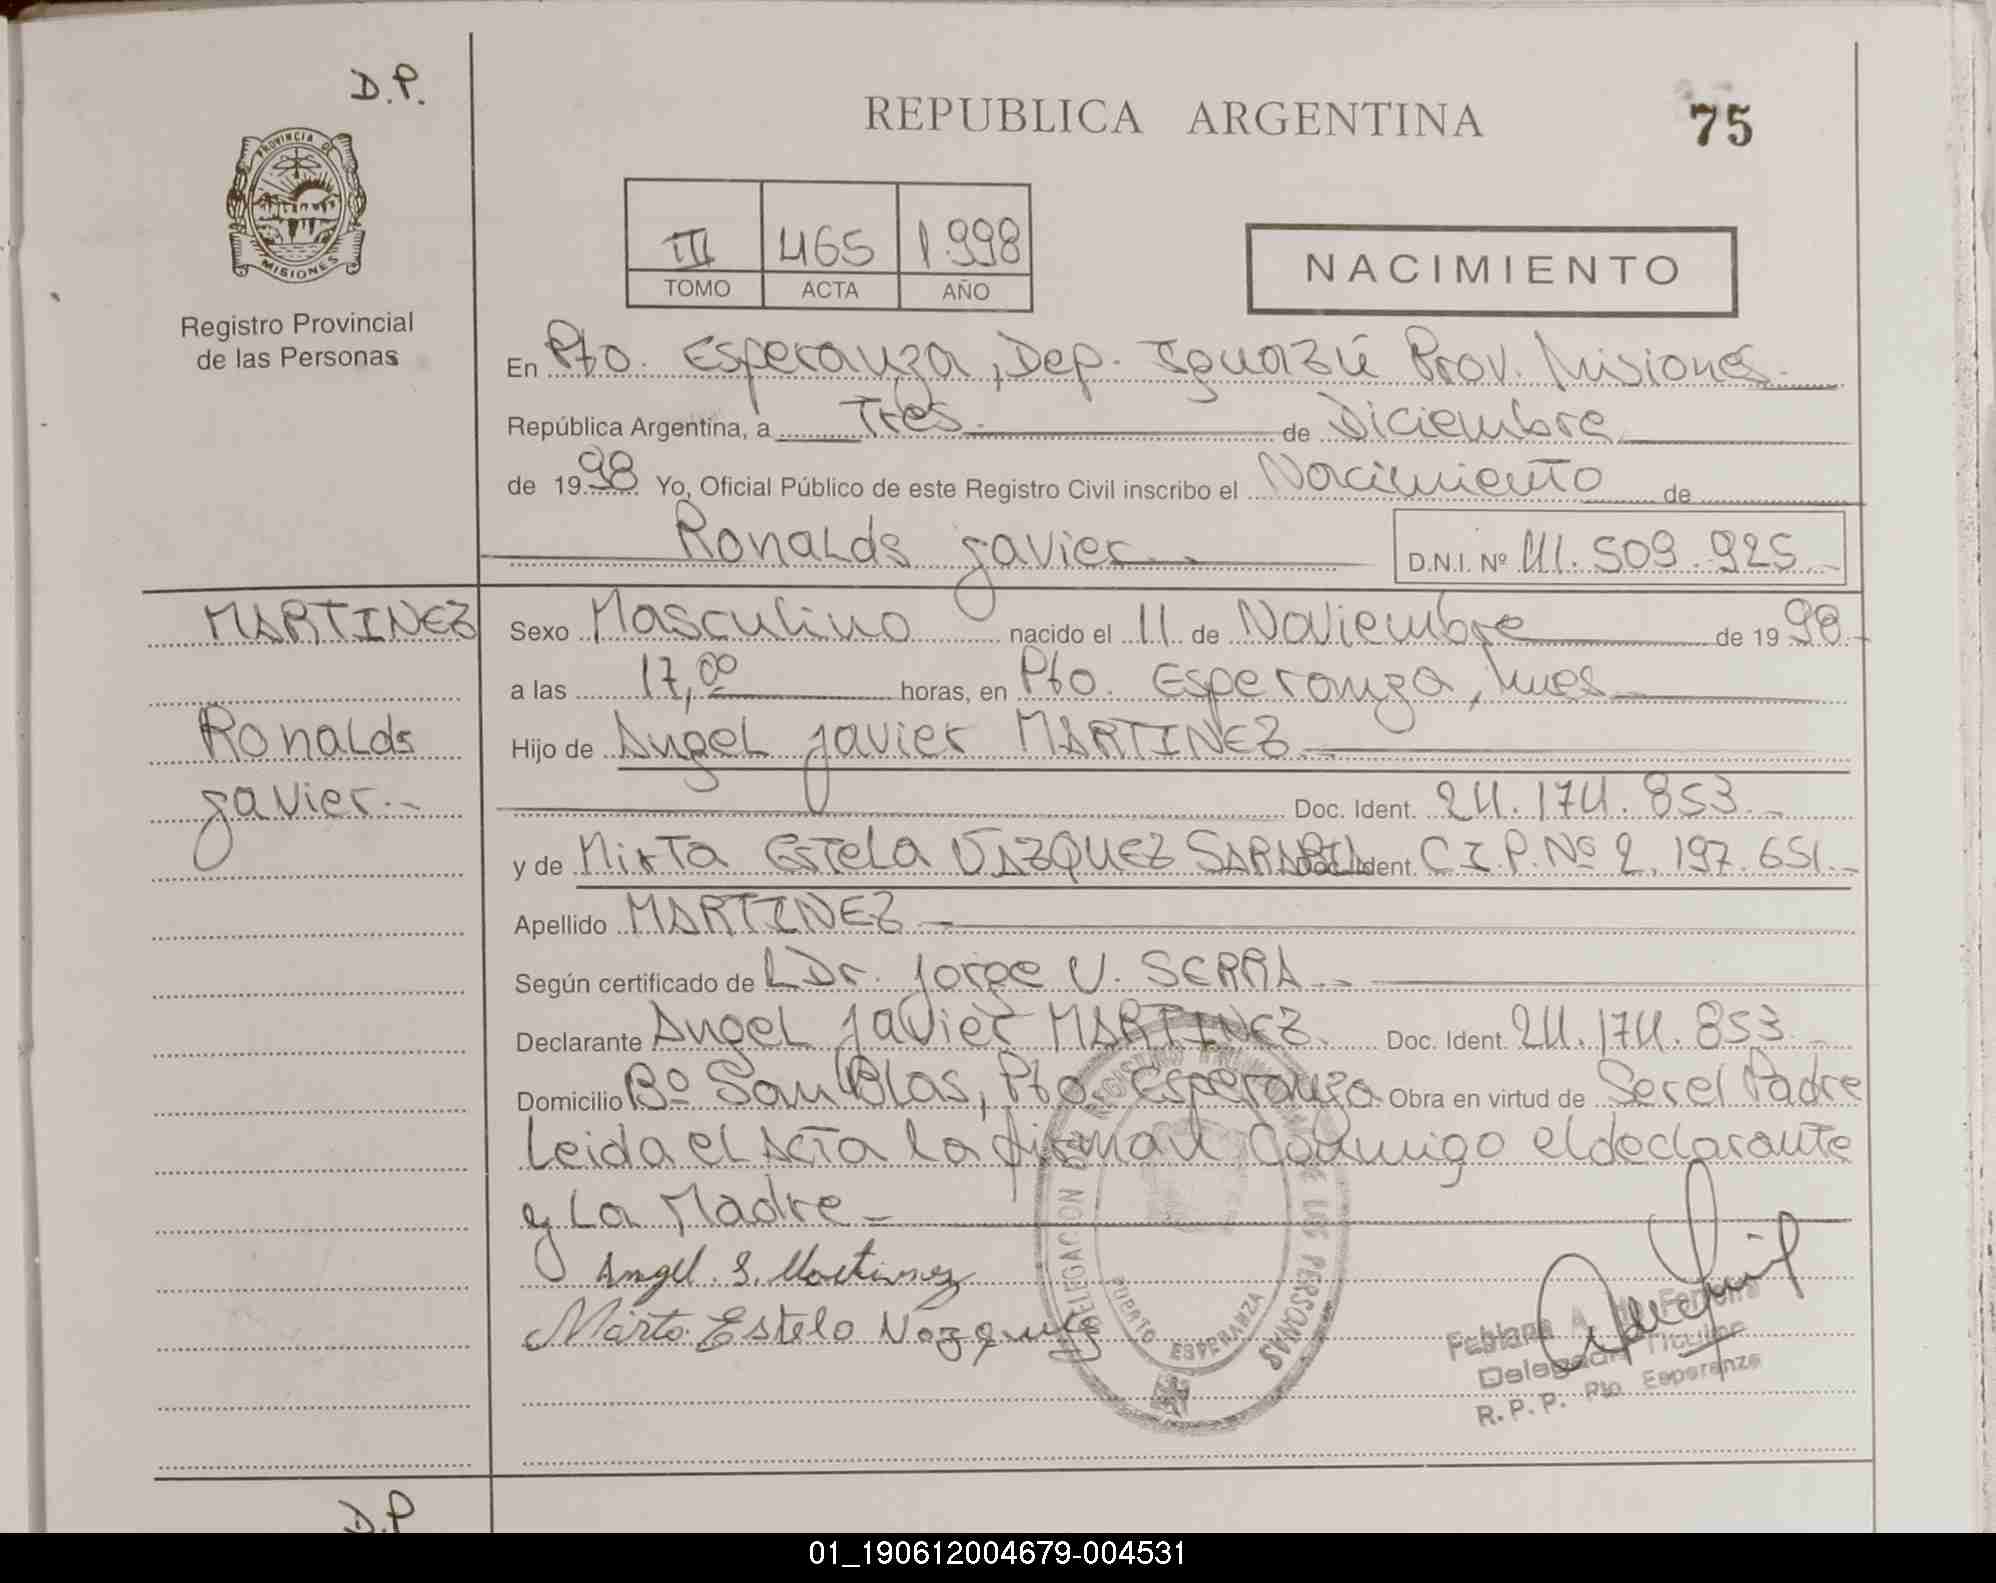 D.P.
PROVINCIA DE
MISIONES
Registro Provincial
de las Personas
REPUBLICA ARGENTINA
75
III 465 1.998
TOMO ACTA AÑO
NACIMIENTO
En Pto. Esperanza, Dep. Iguazú Prov. Misiones.
República Argentina, a Tres de Diciembre
de 1998 Yo, Oficial Público de este Registro Civil inscribo el Nacimiento de
Ronalds Javier D.N.I. Nº 41.509.925
MARTINEZ
Ronalds
Javier.-
Sexo Masculino nacido el 11 de Noviembre de 1998.
a las 17,00 horas, en Pto. Esperanza, Mnes
Hijo de Angel Javier MARTINEZ
Doc. Ident. 24.174.853.-
y de Mirta Estela VAZQUEZ Doc. Ident. C.I.P. Nº 2.197.651.-
Apellido MARTINEZ
Según certificado de Dr. Jorge V. SERRA
Declarante Angel Javier MARTINEZ Doc. Ident. 24.174.853.
Domicilio Bº San Blas, Pto. Esperanza Obra en virtud de Ser el Padre
Leida el Acta la firman Conmigo el declarante
y La Madre-
Angel. J. Martinez
Mirta Estela Vazquez
DELEGACION DEL REGISTRO PROVINCIAL DE LAS PERSONAS
PUERTO ESPERANZA
Fabiana A. Ferreira
Delegada Titular
R.P.P. Pto. Esperanza
D.P
01_190612004679-004531